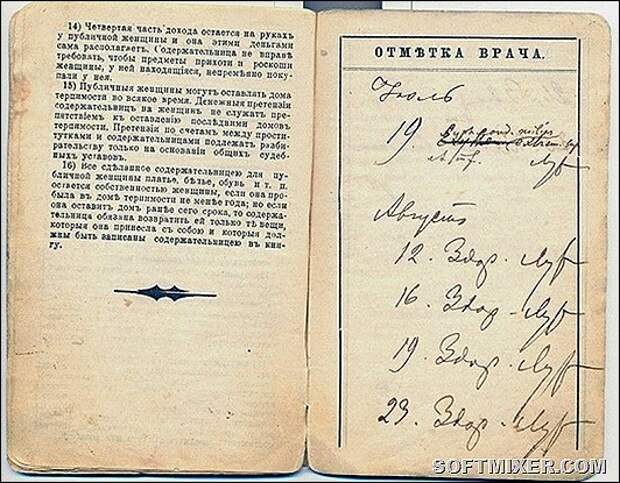 14) Четвертая часть дохода остается на рукахъ
у публичной женщины и она этими деньгами
сама располагаетъ. Содержательница не вправѣ
требовать, чтобы предметы прихоти и роскоши
женщины, у ней находящіяся, непремѣнно поку-
пали у нея.
15) Публичныя женщины могутъ оставлять дома
терпимости во всякое время. Денежныя претензіи
содержательницъ на женщинъ не служатъ пре-
пятствіемъ къ оставленію послѣдними домовъ
терпимости. Претензіи по счетамъ между прости-
тутками и содержательницами подлежатъ разби-
рательству только на основаніи общихъ судеб-
ныхъ уставовъ.
16) Все сдѣланное содержательницею для пу-
бличной женщины платье, бѣлье, обувь и т. п.
остается собственностью женщины, если она про-
была въ домѣ терпимости не менѣе года; но если
она оставитъ домъ ранѣе сего срока, то содержа-
тельница обязана возвратить ей только тѣ вещи,
которыя она принесла съ собою и которыя дол-
жны быть записаны содержательницею въ кни-
гу.
ОТМѢТКА ВРАЧА.
Іюль
19
Августъ
12. Здор.
16. Здор.
19. Здор.
23. Здор.
SOFTMIXER.COM